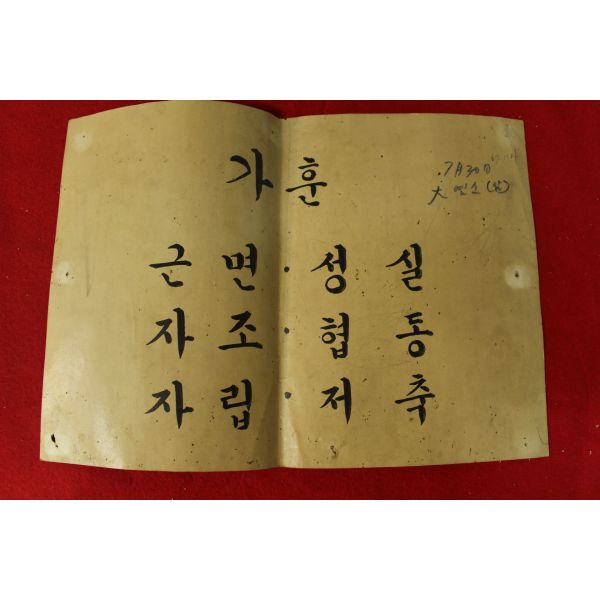 가훈
7月30日
근면·성실
자조·협동
자립·저축